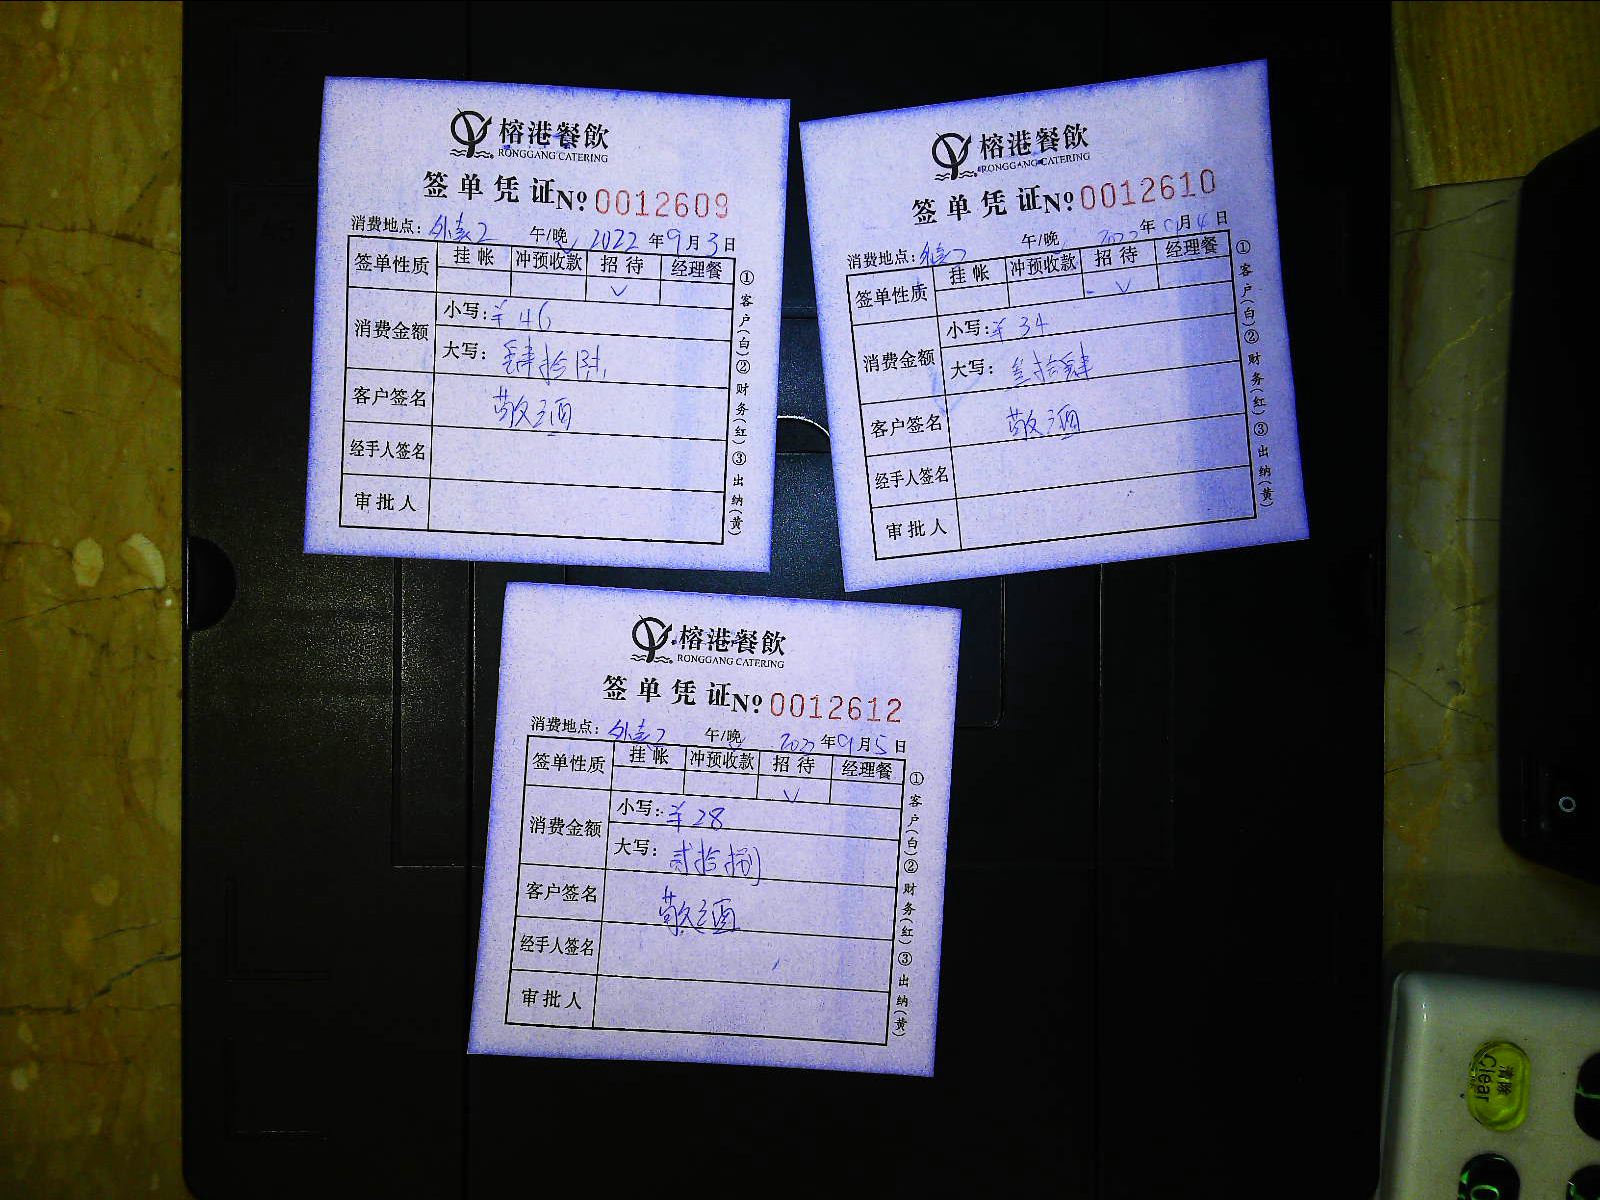 榕港餐飲
RONGGANG CATERING
签单凭证 Nº 0012609
消费地点：外卖2 午/晚 2022年9月3日
签单性质 挂帐 冲预收款 招待 经理餐
√
消费金额 小写：¥46
大写：肆拾陆
客户签名 敬酒
经手人签名
审批人
①客户(白)②财务(红)③出纳(黄)
榕港餐飲
RONGGANG CATERING
签单凭证 Nº 0012610
消费地点：外卖2 午/晚 2022年9月4日
签单性质 挂帐 冲预收款 招待 经理餐
√
消费金额 小写：¥34
大写：叁拾肆
客户签名 敬酒
经手人签名
审批人
①客户(白)②财务(红)③出纳(黄)
榕港餐飲
RONGGANG CATERING
签单凭证 Nº 0012612
消费地点：外卖2 午/晚 2022年9月5日
签单性质 挂帐 冲预收款 招待 经理餐
√
消费金额 小写：¥28
大写：贰拾捌
客户签名 敬酒
经手人签名
审批人
①客户(白)②财务(红)③出纳(黄)
清除
Clear
0